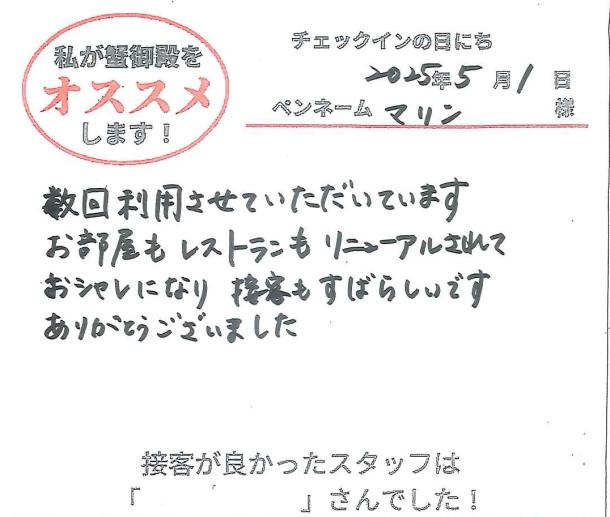 私が蟹御殿を
オススメ
します！
チェックインの日にち
2025年5月1日
ペンネーム マリン 様
数回利用させていただいています
お部屋もレストランもリニューアルされて
おシャレになり 接客もすばらしいです
ありがとうございました
接客が良かったスタッフは
「　　　　　」さんでした！